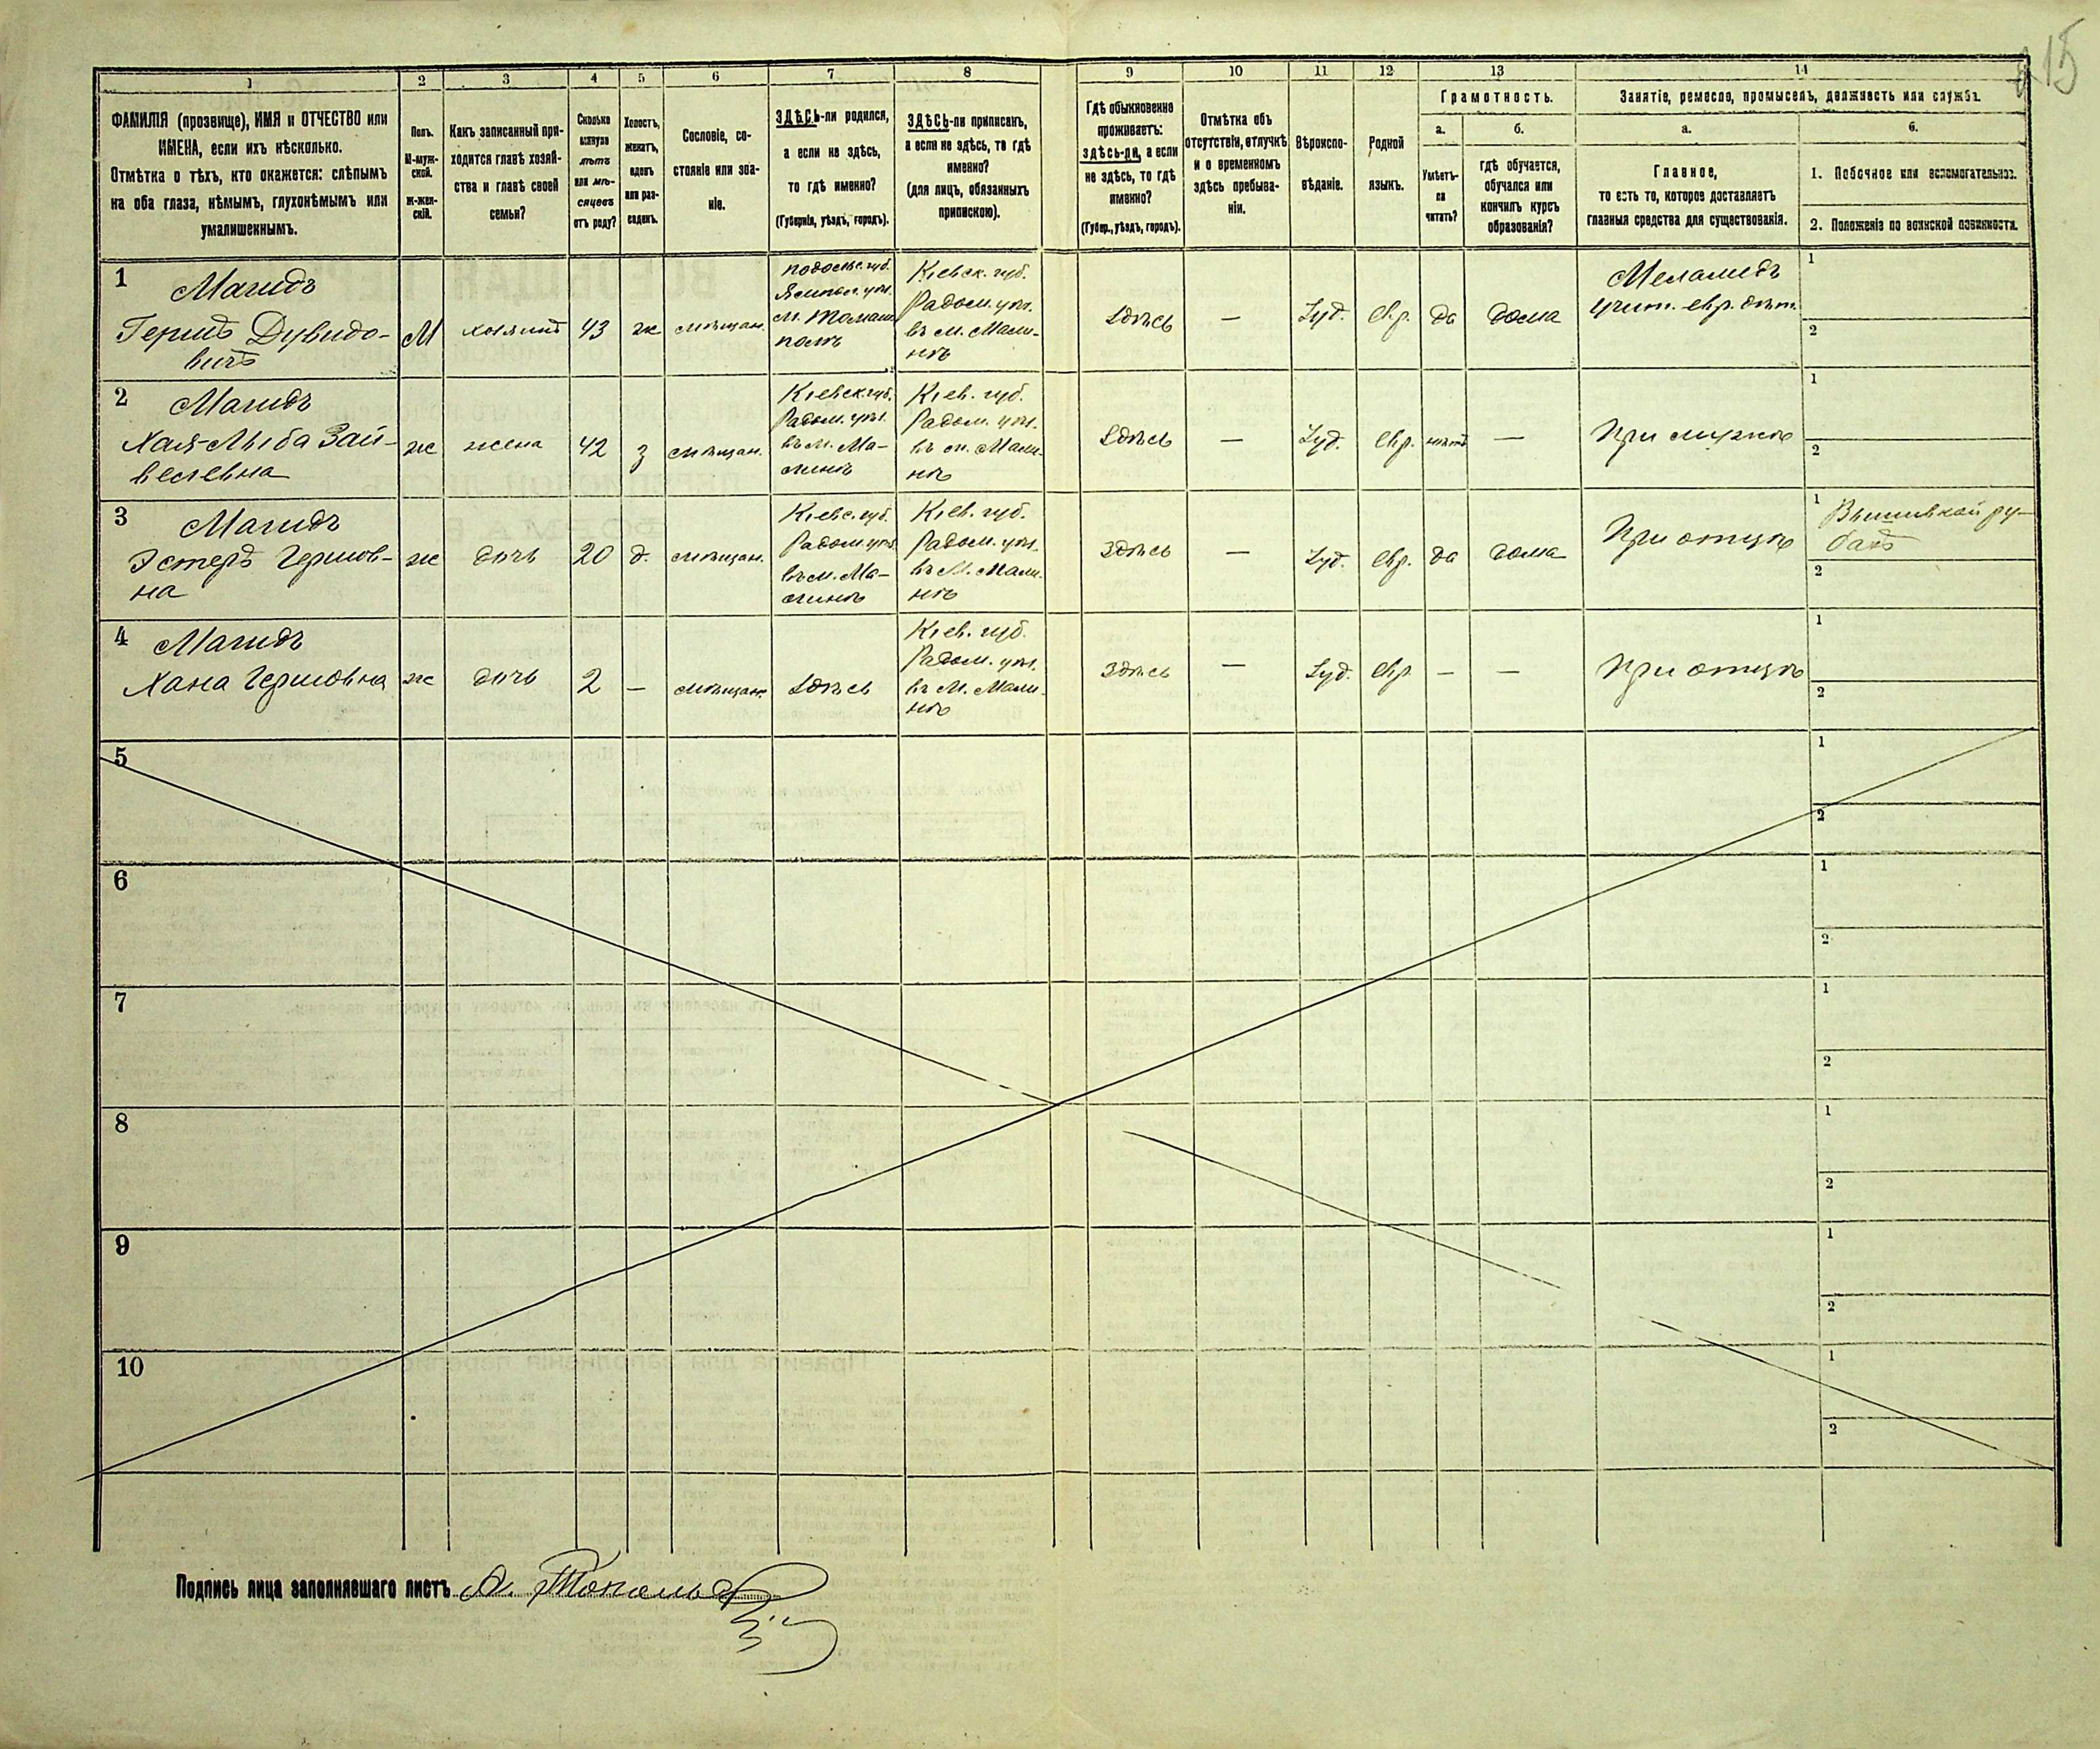 15
1 2 3 4 5 6 7 8 9 10 11 12 13 14
ФАМИЛІЯ (прозвище), ИМЯ и ОТЧЕСТВО или
ИМЕНА, если ихъ нѣсколько.
Отмѣтка о тѣхъ, кто окажется: слѣпымъ
на оба глаза, нѣмымъ, глухонѣмымъ или
умалишеннымъ.
Полъ.
М-муж-
ской.
Ж-жен-
скій.
Какъ записанный при-
ходится главѣ хозяй-
ства и главѣ своей
семьи?
Сколько
минуло
лѣтъ
или мѣ-
сяцевъ
отъ роду?
Холостъ,
женатъ,
вдовъ
или раз-
веденъ.
Сословіе, со-
стояніе или зва-
ніе.
ЗДѢСЬ-ли родился,
а если не здѣсь,
то гдѣ именно?
(Губернія, уѣздъ, городъ).
ЗДѢСЬ-ли приписанъ,
а если не здѣсь, то гдѣ
именно?
(для лицъ, обязанныхъ
припискою).
Гдѣ обыкновенно
проживаетъ:
здѣсь-ли, а если
не здѣсь, то гдѣ
именно?
(Губер., уѣздъ, городъ).
Отмѣтка объ
отсутствіи, отлучкѣ
и о временномъ
здѣсь пребыва-
ніи.
Вѣроиспо-
вѣданіе.
Родной
языкъ.
Грамотность.
а.
Умѣетъ-
ли
читать?
б.
гдѣ обучается,
обучался или
кончилъ курсъ
образованія?
Занятіе, ремесло, промыселъ, должность или служба.
а.
Главное,
то есть то, которое доставляетъ
главныя средства для существованія.
б.
1. Побочное или вспомогательное.
2. Положеніе по воинской повинности.
1
Магидъ
Гершъ Дувидо-
вичъ
М
хозяинъ
43
ж
мѣщан.
Подольс. губ.
Ямпол. уѣз.
м. Томаш
полѣ
Кіевск. губ.
Радом. уѣз.
въ м. Мали-
нѣ
Здѣсь
—
Іуд.
евр.
да
дома
Меламедъ
учит. евр. дѣт.
1
2
2
Магидъ
Хая-Лыба Зай-
велевна
ж
жена
42
з
мѣщан.
Кіевск. губ.
Радом. уѣз.
въ м. Ма-
линѣ
Кіев. губ.
Радом. уѣз.
въ м. Мали-
нѣ
Здѣсь
—
Іуд.
евр.
нѣтъ
—
При мужѣ
1
2
3
Магидъ
Эстеръ Гершов-
на
ж
дочь
20
д.
мѣщан.
Кіевс. губ.
Радом. уѣз.
въ м. Ма-
линѣ
Кіев. губ.
Радом. уѣз.
въ М. Мали-
нѣ
здѣсь
—
Іуд.
евр.
да
дома
При отцѣ
1
Вышивкой ру-
бахъ
2
4
Магидъ
Хана Гершовна
ж
дочь
2
—
мѣщан.
Здѣсь
Кіев. губ.
Радом. уѣз.
въ М. Мали-
нѣ
здѣсь
—
Іуд.
евр.
—
—
При отцѣ
1
2
5
1
2
6
1
2
7
1
2
8
1
2
9
1
2
10
1
2
Подпись лица заполнявшаго листъ